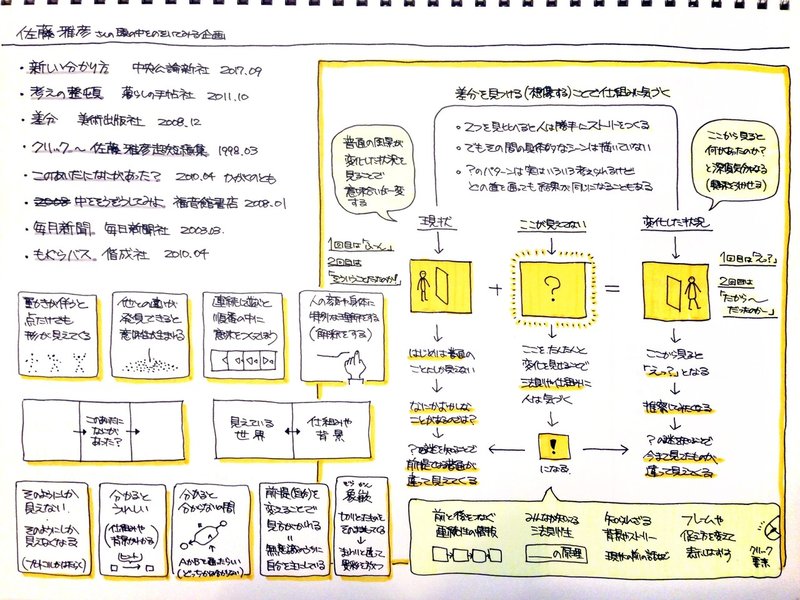 佐藤雅彦さんの頭の中をのぞいてみる企画
・新しい分かり方 中央公論新社 2017.09
・考えの整頓 暮らしの手帖社 2011.10
・差分 美術出版社 2008.12
・クリック〜佐藤雅彦超短編集 1998.03
・このあいだになにがあった? 2010.04 かがくのとも
・中をそうぞうしてみよ 福音館書店 2008.01
・毎月新聞 毎日新聞社 2003.03
・もぐらバス 偕成社 2010.04
差分を見つける(想像する)ことで仕組みに気づく
・2つを見比べると人は勝手にストーリーをつくる
・でもその間の具体的なシーンは描いていない
・?のパターンは実はいろいろ考えられるけど
どの道を通っても結果が同じになることもある
普通の風景が
変化した状況を
見ることで
意味合いが一変
する
ここから見ると
何があったのか?
と探偵気分になる
現状
ここが見えてない
変化した状況
1回目は「ふーん」
2回目は
「そういうことだったのか!」
+
?
=
1回目は「えっ?」
2回目は
「だから〜
だったのか〜」
はじめは普通の
ことにしか見えない
なにかおかしな
ことがあるのでは?
?の謎を知ることで
前提である普通が
違って見えてくる
ここをたんたんと
変化を見せることで
法則や仕組みに
人は気づく
!
になる
ここから見ると
「えっ?」となる
推察してみたくなる
?の謎を知ることで
今まで見てたものが
違って見えてくる
動きが伴うと
点だけでも
形が見えてくる
他との違いが
発見できると
意味性が生まれる
連続に並ぶと
順番の中に
意味をつくってしまう
人の顔や身体に
特別な理解をする
(解釈をする)
このあいだに
なにが
あった?
見えている
世界
仕組みや
背景
そのようにしか
見えない
そのようにしか
見えなくなる
分かると
うれしい
(仕組みや
背景がわかる)
ヒント
分かると
分からないの間
A
B
AからBを通ったらい
(どっちか分からない)
前提(自分)を
変えることで
見方がかわれる
無意識のうちに
自分を主にしている
象嵌
切りとったものを
そのまましてくる
まわりと違って
異彩を放つ
前と後をつなぐ
連続性の解放
みんなが知ってる
法則性
___の原理
知りえざる
背景やストーリー
フレームや
捉え方を変えて
表示しなおす
クリック
要素